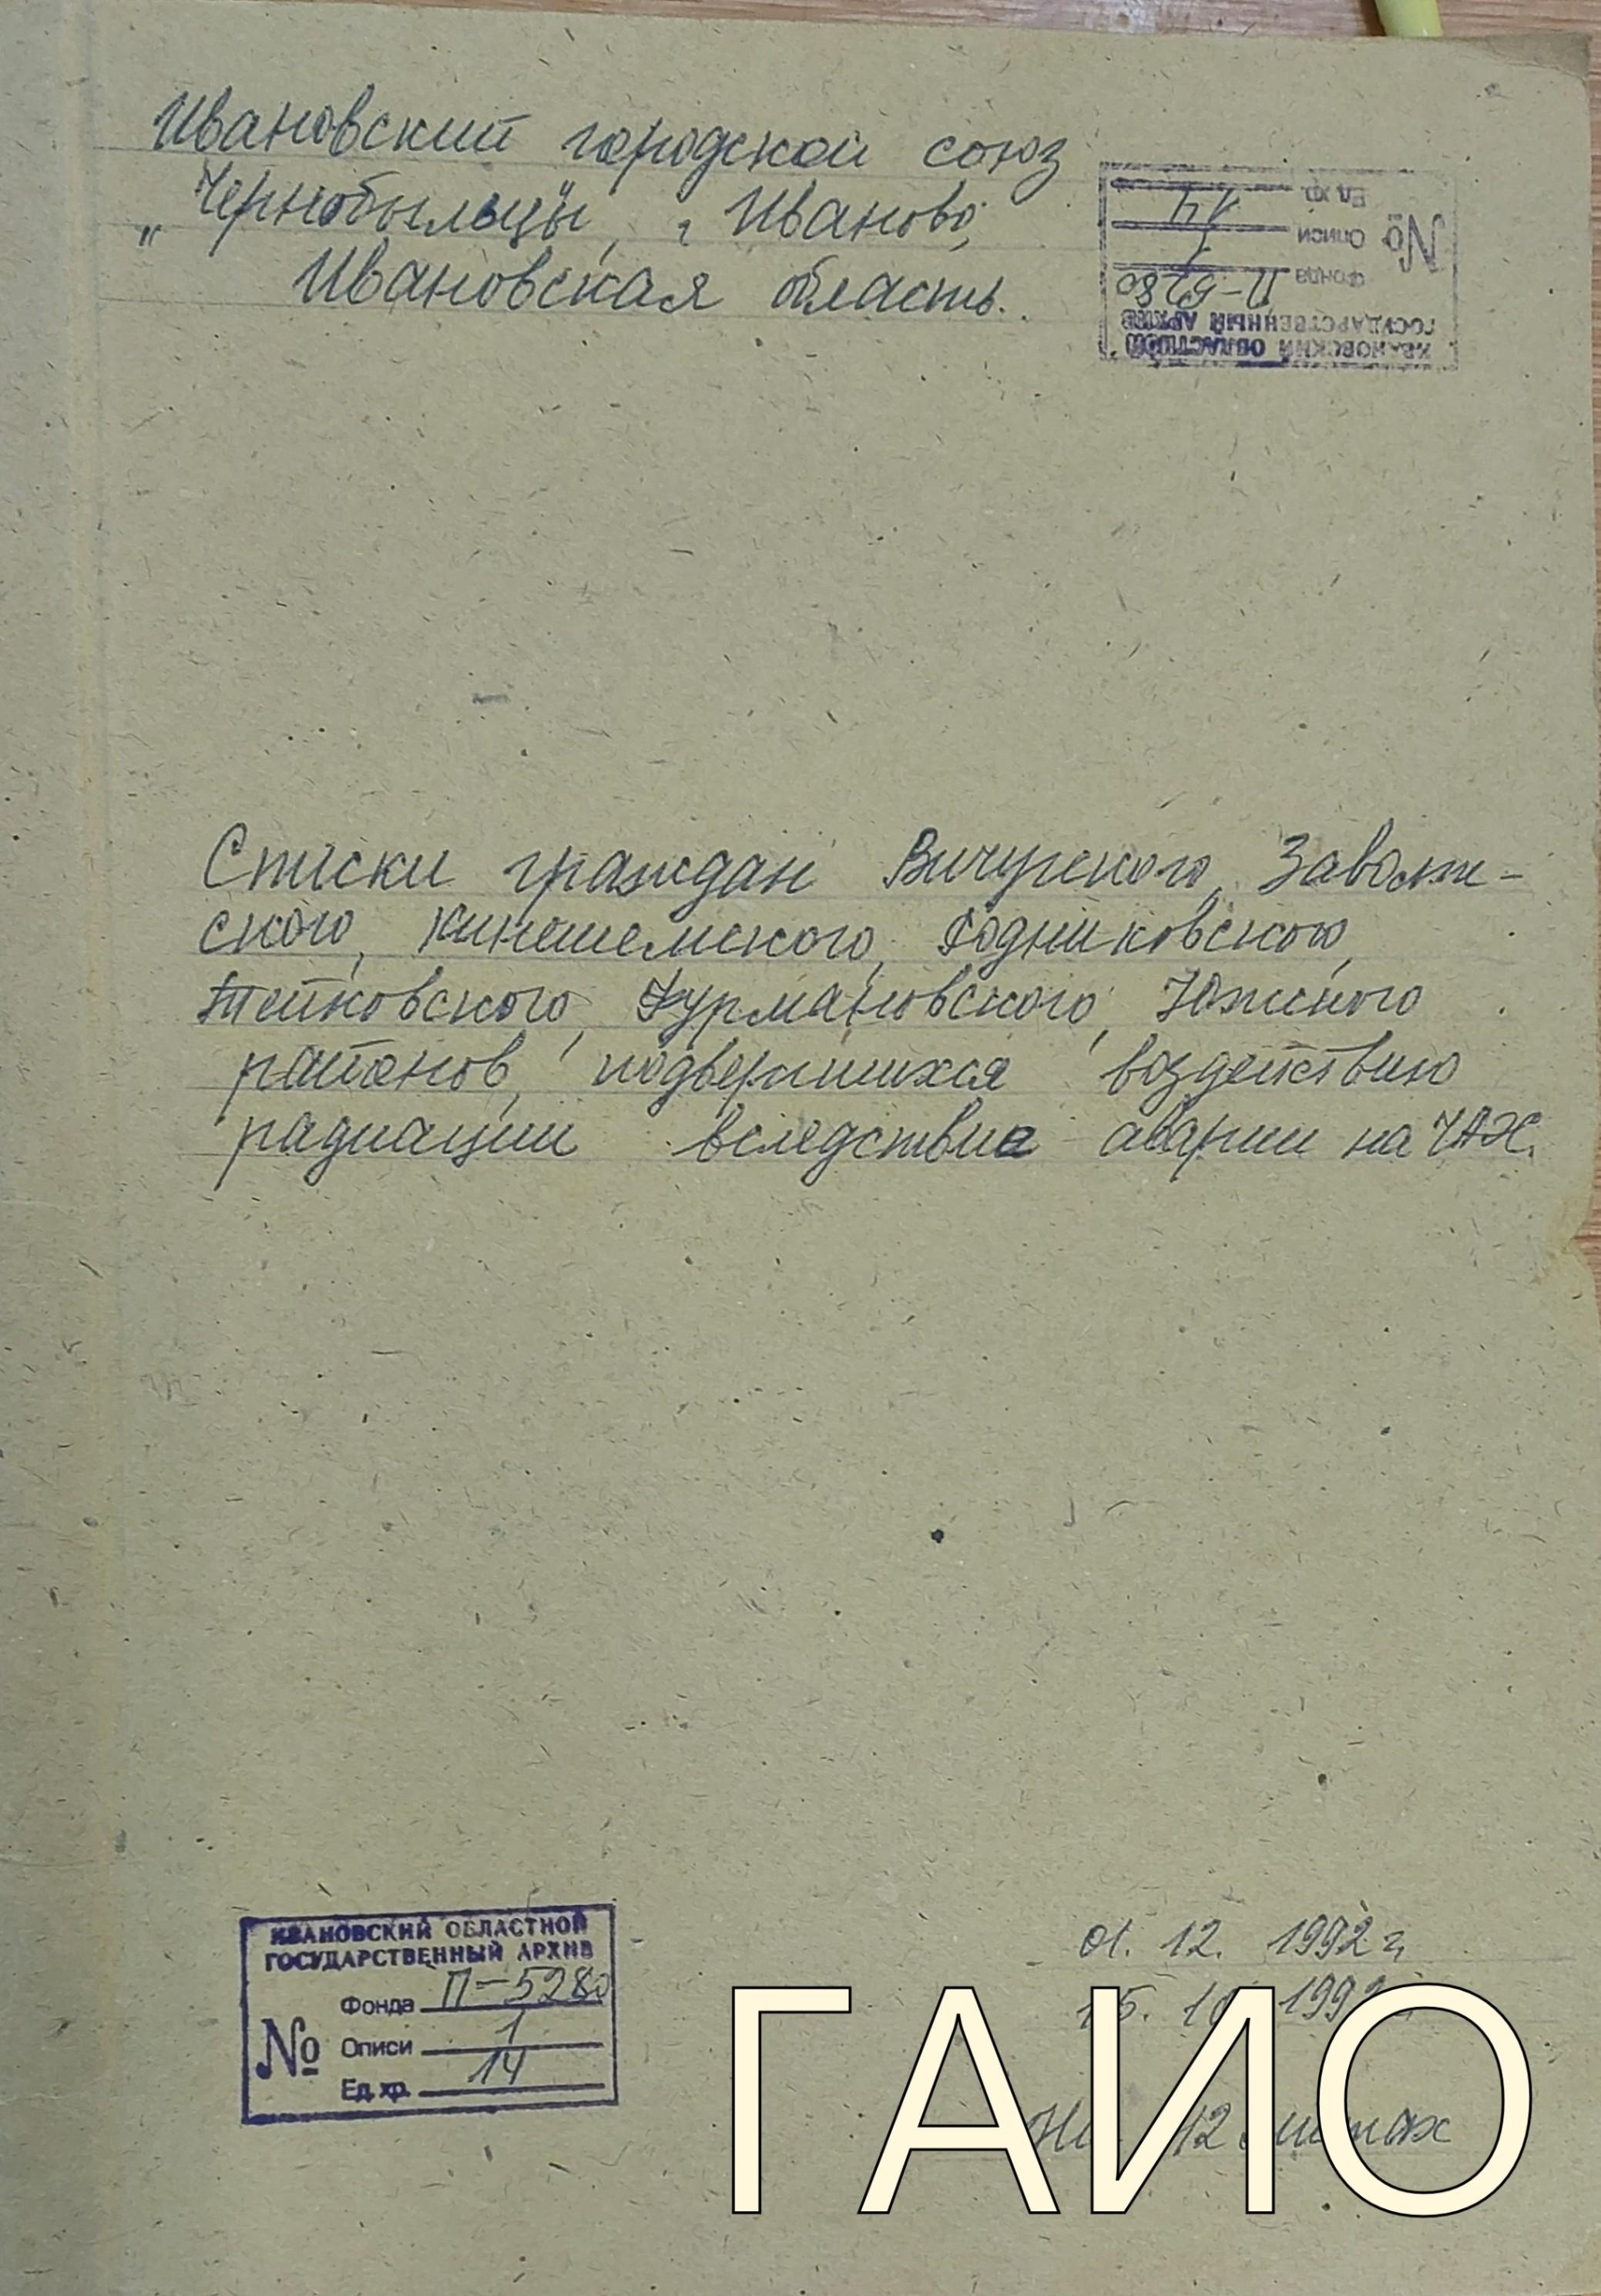 Ивановский городской союз
„Чернобыльцы", г Иваново,
Ивановская область.
ИВАНОВСКИЙ ОБЛАСТНОЙ
ГОСУДАРСТВЕННЫЙ АРХИВ
Фонда П-5280
№ Описи 1
Ед. хр. 14
Списки граждан Вичугского, Заволж-
ского, Кинешемского, Родниковского,
Тейковского, Фурмановского, Южского
районов, подвергшихся воздействию
радиации вследствие аварии на ЧАЭС.
ИВАНОВСКИЙ ОБЛАСТНОЙ
ГОСУДАРСТВЕННЫЙ АРХИВ
Фонда П-5280
№ Описи 1
Ед. хр. 14
01. 12. 1992 г.
На листах
ГАИО